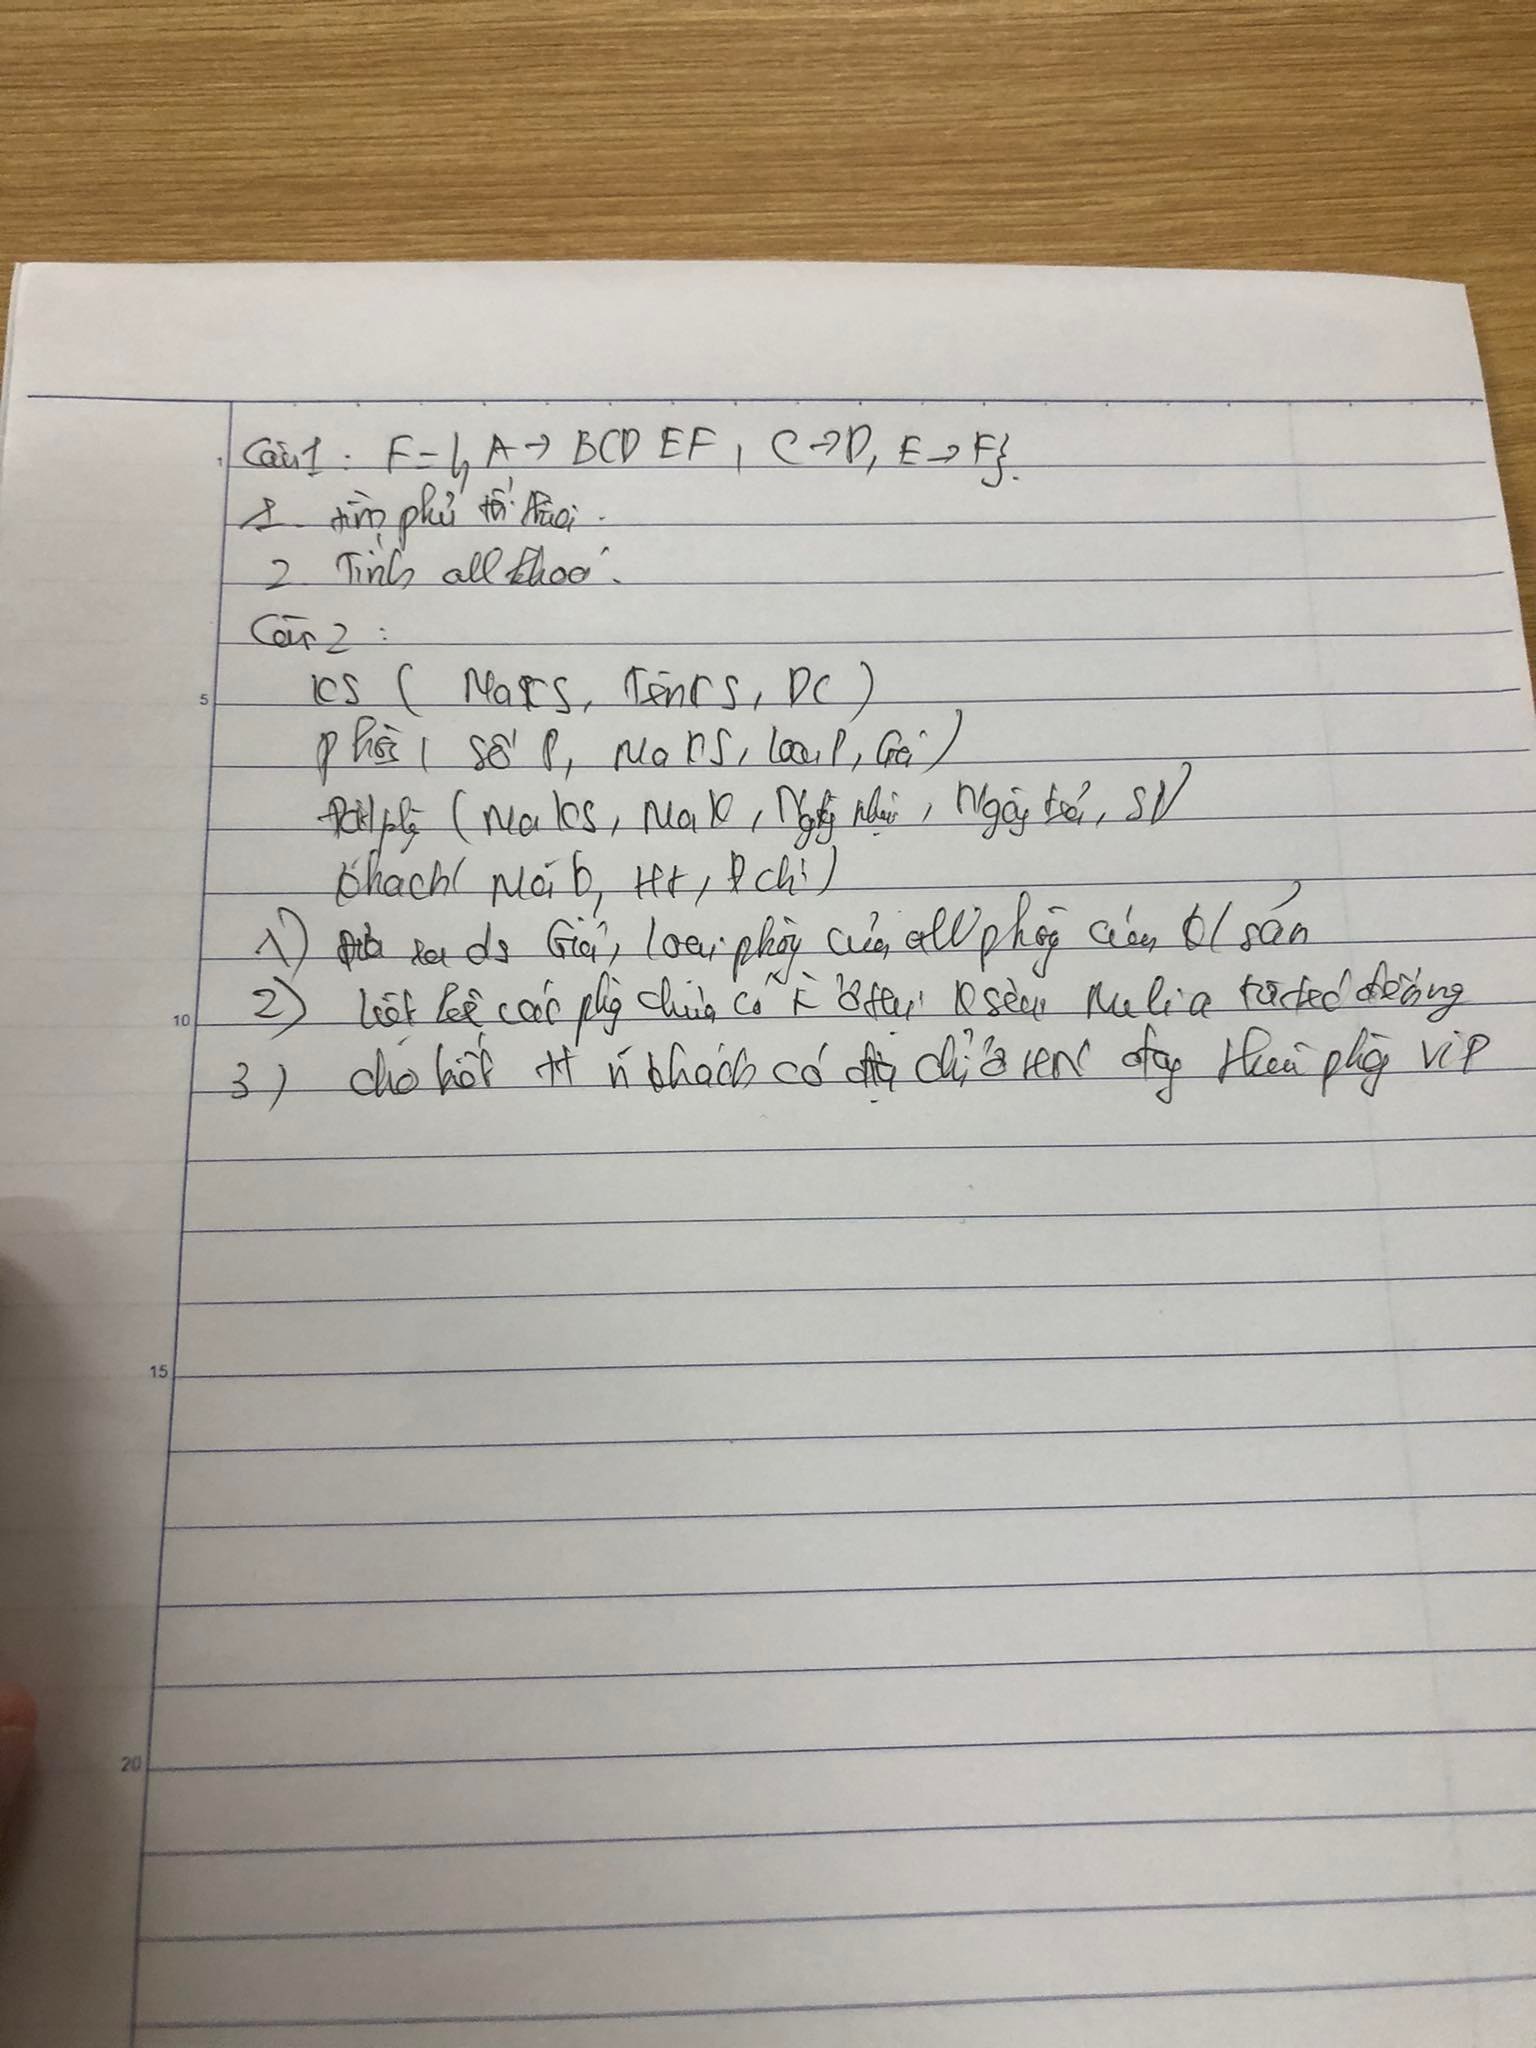 Câu 1 : F = { A → BCD EF, C → D, E → F}.
1. tìm phủ tối thiểu.
2. Tính all khoá.
Câu 2 :
KS ( MaKS, TênKS, DC )
Phòng ( Số P, MaKS, Loại P, Giá )
Đặt phg ( MaKS, MaK, Ngày nhận, Ngày trả, SP
Khach( Mã k, HT, Đ chỉ )
1) Đưa ra ds Giá, loại phòng của all phòng của K/ sạn
2) liệt kê các phg chưa có ở tại Melia
3) cho biết khách có địa chỉ ở HN phòng VIP
1
5
10
15
20